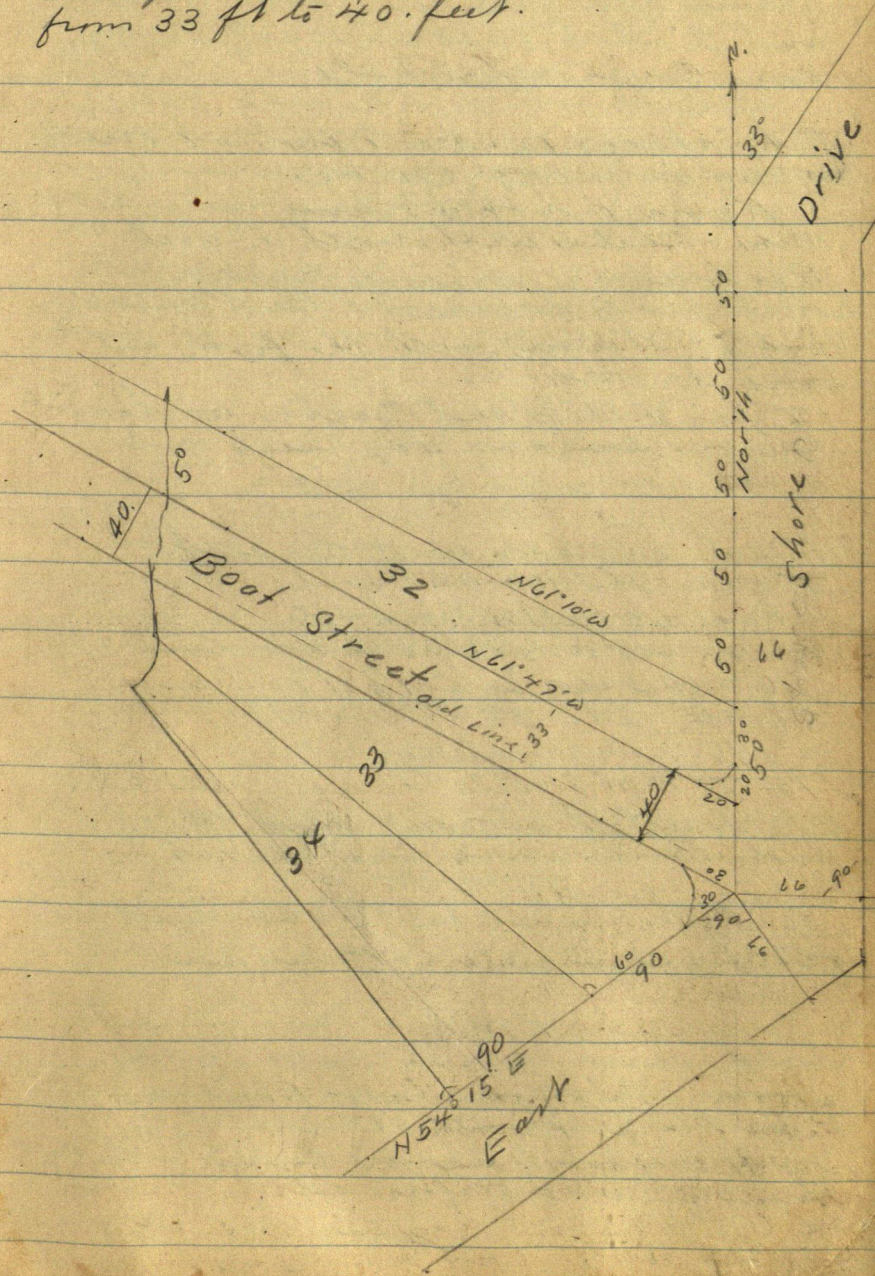 from 33 ft to 40. feet.
N.
33°
Drive
50
50
50
North
50
50
Shore
66
50
40.
Boat Street
32
N61°10'W
N61°47'W
Old Line
33'
33
34
30
50
20
20
40
20
30
90
66
90
66
60
90
90
N54°15'E
East